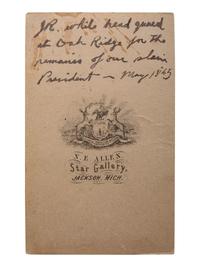 JR. while head guard
at Oak Ridge for the
remains of our slain
President – May 1865
N. E. ALLEN
Star Gallery,
JACKSON, MICH.